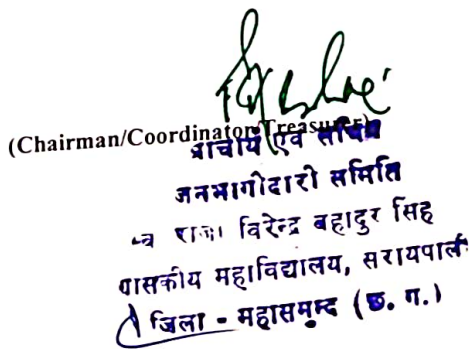 (Chairman/Coordinator/Treasurer)
प्राचार्य एवं सचिव
जनभागीदारी समिति
राजा विरेन्द्र बहादुर सिंह
शासकीय महाविद्यालय, सरायपाली
जिला - महासमुन्द (छ. ग.)